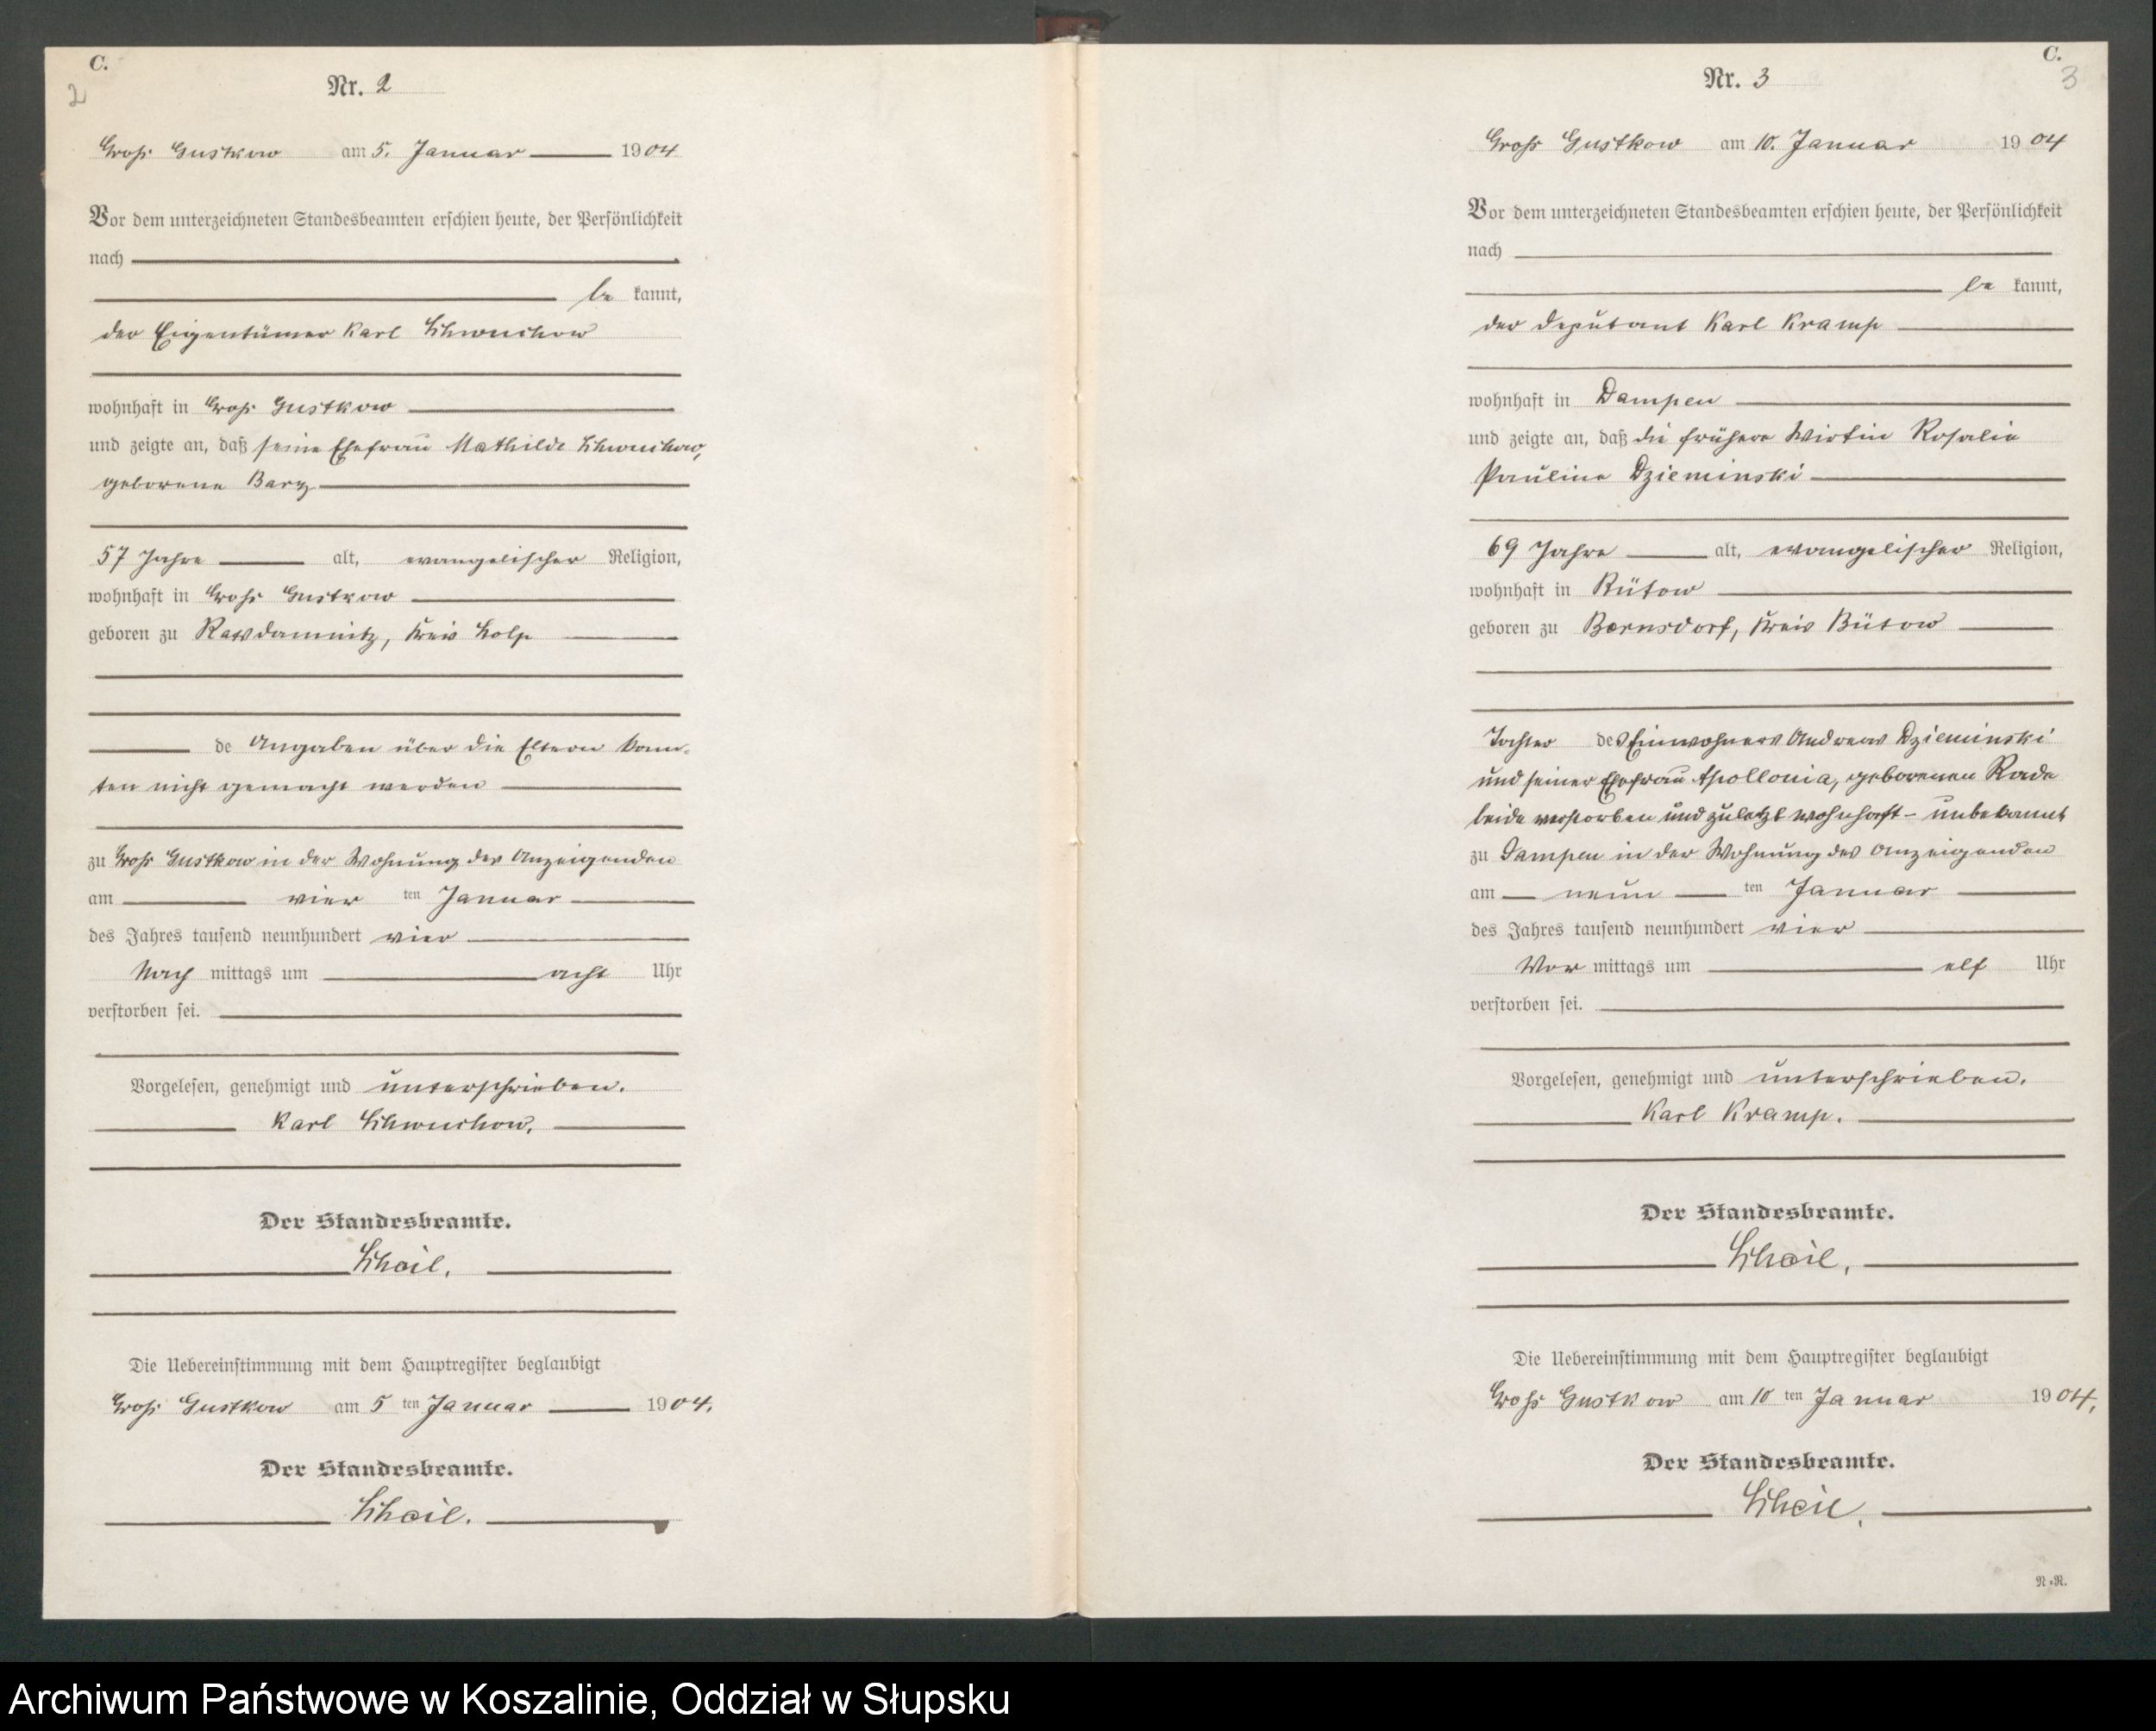 C.
2
Nr. 2
Groß Gustkow am 5. Januar 1904
Vor dem unterzeichneten Standesbeamten erschien heute, der Persönlichkeit
nach
be kannt,
der Eigentümer Karl Schwuchow
wohnhaft in Groß Gustkow
und zeigte an, daß seine Ehefrau Mathilde Schwuchow,
geborene Barz
57 Jahre alt, evangelischer Religion,
wohnhaft in Groß Gustkow
geboren zu Rathsdamnitz, Kreis Stolp
de Angaben über die Eltern konn-
ten nicht gemacht werden
zu Groß Gustkow in der Wohnung des Anzeigenden
am vier ten Januar
des Jahres tausend neunhundert vier
Nach mittags um acht Uhr
verstorben sei.
Vorgelesen, genehmigt und unterschrieben.
Karl Schwuchow.
Der Standesbeamte.
Scheil.
Die Uebereinstimmung mit dem Hauptregister beglaubigt
Groß Gustkow am 5 ten Januar 1904.
Der Standesbeamte.
Scheil.
C.
3
Nr. 3
Groß Gustkow am 10. Januar 1904
Vor dem unterzeichneten Standesbeamten erschien heute, der Persönlichkeit
nach
be kannt,
der Deputant Karl Kramp
wohnhaft in Dampen
und zeigte an, daß die frühere Wirtin Rosalie
Pauline Dzieminski
69 Jahre alt, evangelischer Religion,
wohnhaft in Bütow
geboren zu Bernsdorf, Kreis Bütow
Tochter des Einwohners Andreas Dzieminski
und seiner Ehefrau Apollonia, geborenen Rade
beide verstorben und zuletzt wohnhaft - unbekannt
zu Dampen in der Wohnung des Anzeigenden
am neun ten Januar
des Jahres tausend neunhundert vier
Vor mittags um elf Uhr
verstorben sei.
Vorgelesen, genehmigt und unterschrieben.
Karl Kramp.
Der Standesbeamte.
Scheil.
Die Uebereinstimmung mit dem Hauptregister beglaubigt
Groß Gustkow am 10 ten Januar 1904.
Der Standesbeamte.
Scheil.
N.R.
Archiwum Państwowe w Koszalinie, Oddział w Słupsku